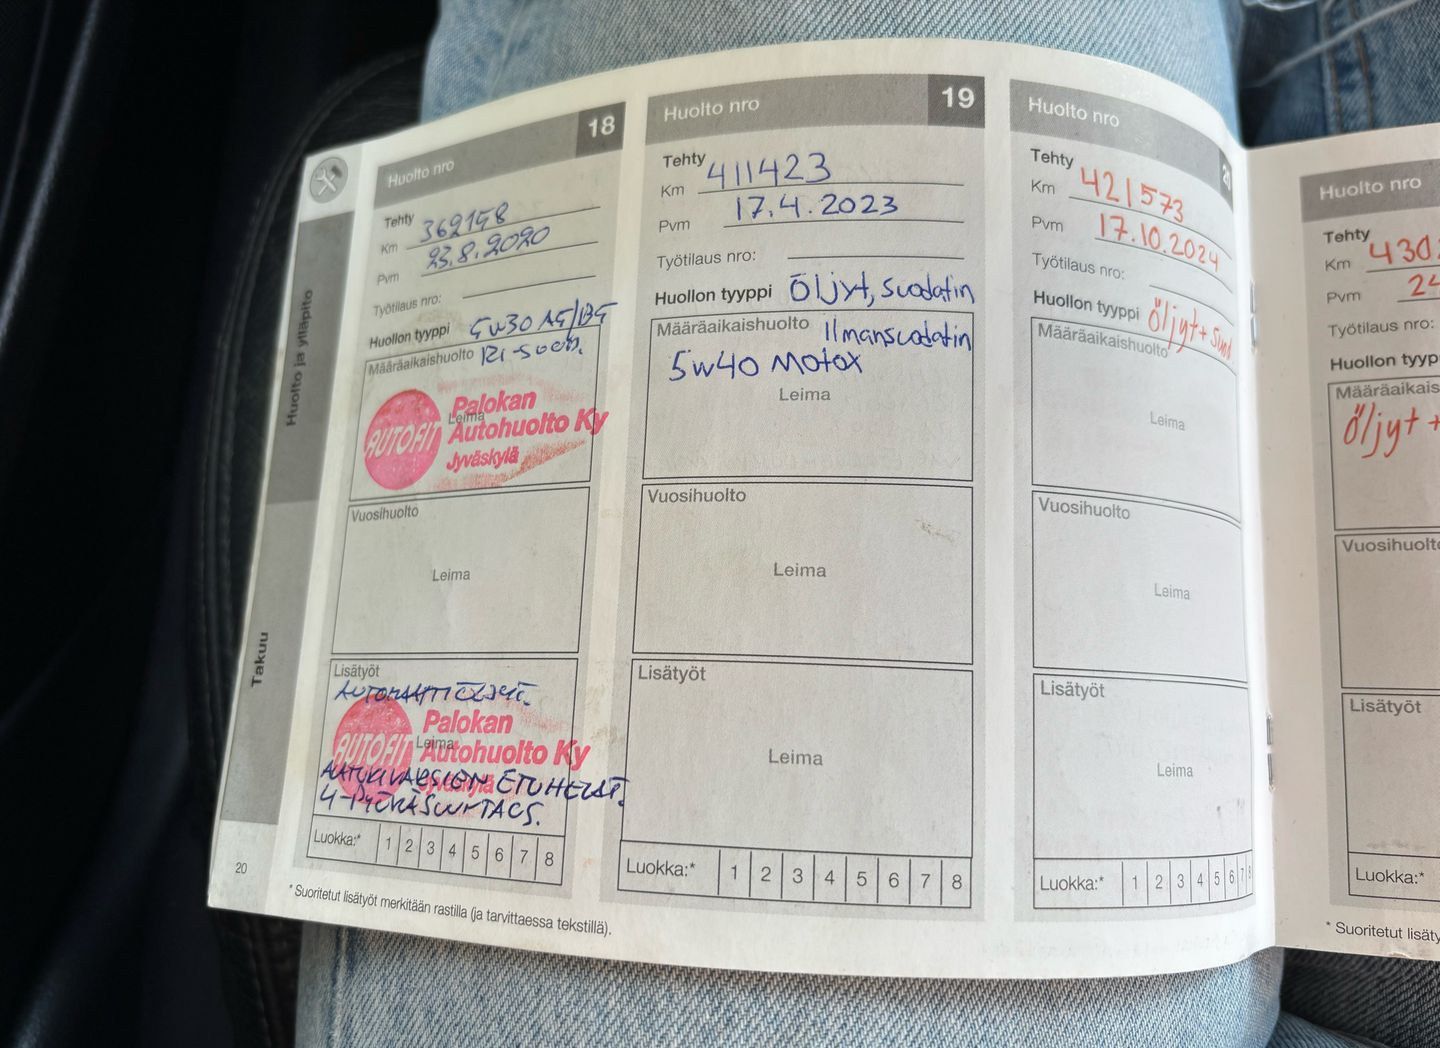 Huolto ja ylläpito
Takuu
20
Huolto nro 18
Tehty
Km 362158
Pvm 23.8.2020
Työtilaus nro:
Huollon tyyppi 5W30 A5/B5
Määräaikaishuolto
Leima
AUTOFIT
Palokan
Autohuolto Ky
Jyväskylä
Vuosihuolto
Leima
Lisätyöt
Leima
AUTOFIT
Palokan
Autohuolto Ky
Jyväskylä
ETUHELAT.
Luokka:* 1 2 3 4 5 6 7 8
* Suoritetut lisätyöt merkitään rastilla (ja tarvittaessa tekstillä).
Huolto nro 19
Tehty
Km 411423
Pvm 17.4.2023
Työtilaus nro:
Huollon tyyppi Öljyt, suodatin
Määräaikaishuolto Ilmansuodatin
5W40 Motox
Leima
Vuosihuolto
Leima
Lisätyöt
Leima
Luokka:* 1 2 3 4 5 6 7 8
Huolto nro 20
Tehty
Km 421573
Pvm 17.10.2024
Työtilaus nro:
Huollon tyyppi Öljyt + suod.
Määräaikaishuolto
Leima
Vuosihuolto
Leima
Lisätyöt
Leima
Luokka:* 1 2 3 4 5 6 7 8
Huolto nro
Tehty
Km 430
Pvm 24
Työtilaus nro:
Huollon tyypp
Määräaikais
Öljyt +
Vuosihuolt
Lisätyöt
Luokka:*
* Suoritetut lisäty